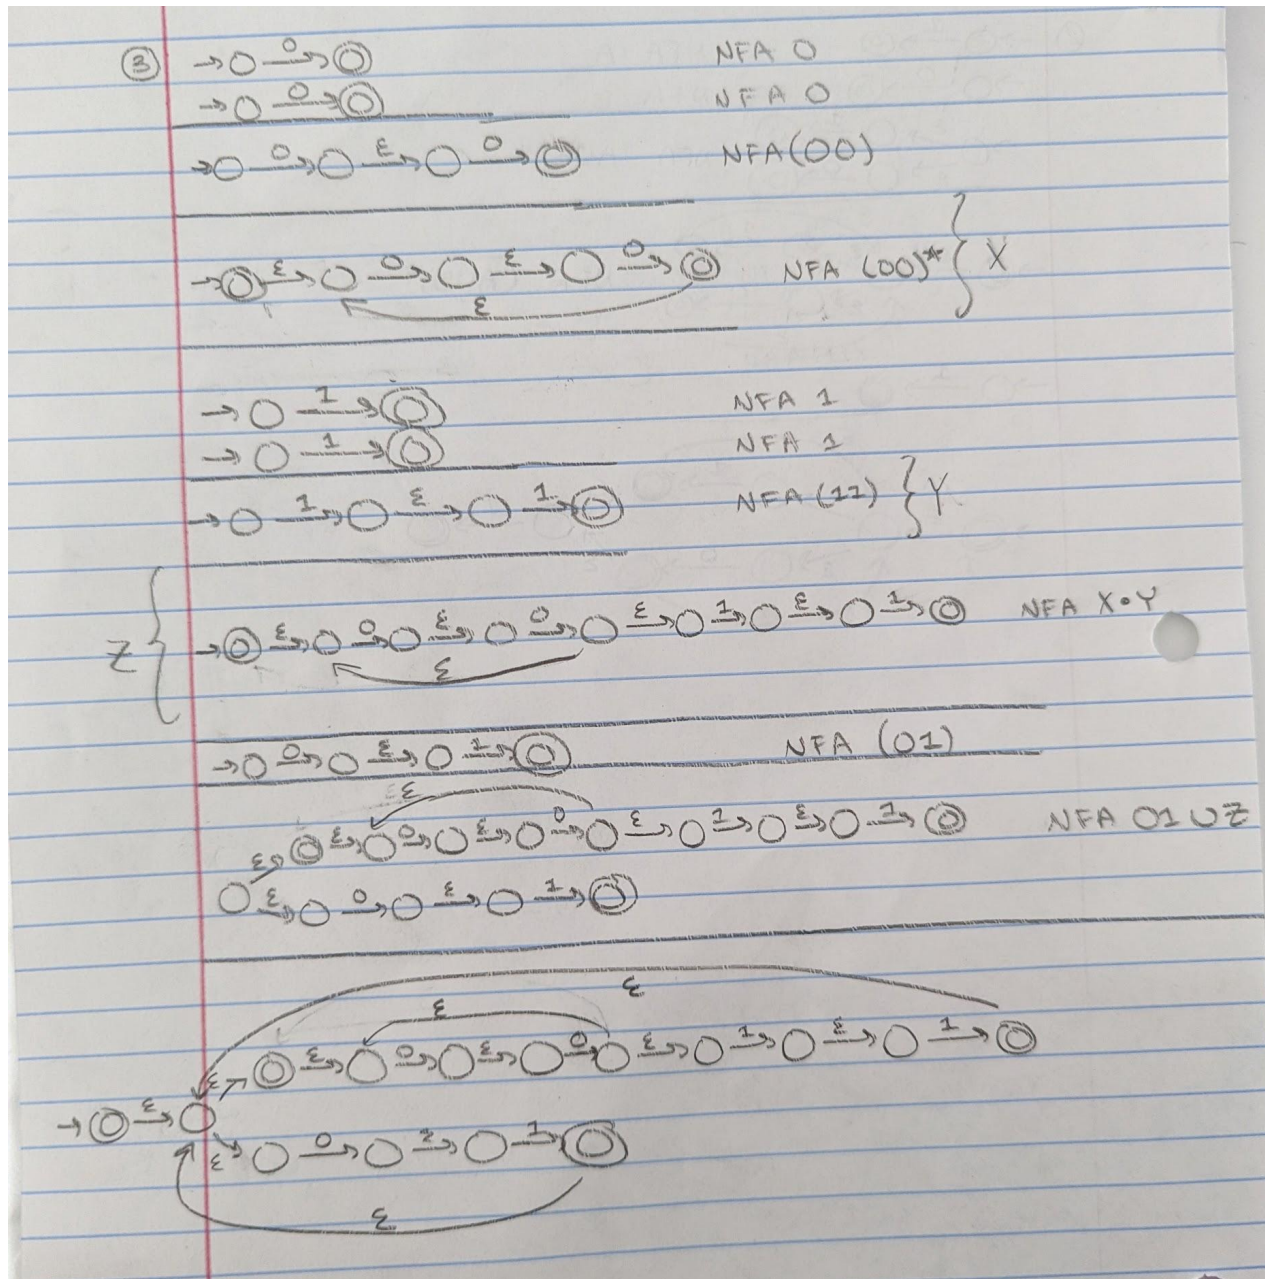 ③ 0 NFA 0
0 NFA 0
0 ε 0 NFA(00)
ε 0 ε 0 NFA (00)* } X
ε
1 NFA 1
1 NFA 1
1 ε 1 NFA (11) } Y
Z { ε 0 ε 0 ε 1 ε 1 NFA X•Y
ε
0 ε 1 NFA (01)
ε
ε ε 0 ε 0 ε 1 ε 1 NFA 01 ∪ Z
ε 0 ε 1
ε
ε
ε ε 0 ε 0 ε 1 ε 1
ε
ε 0 ε 1
ε